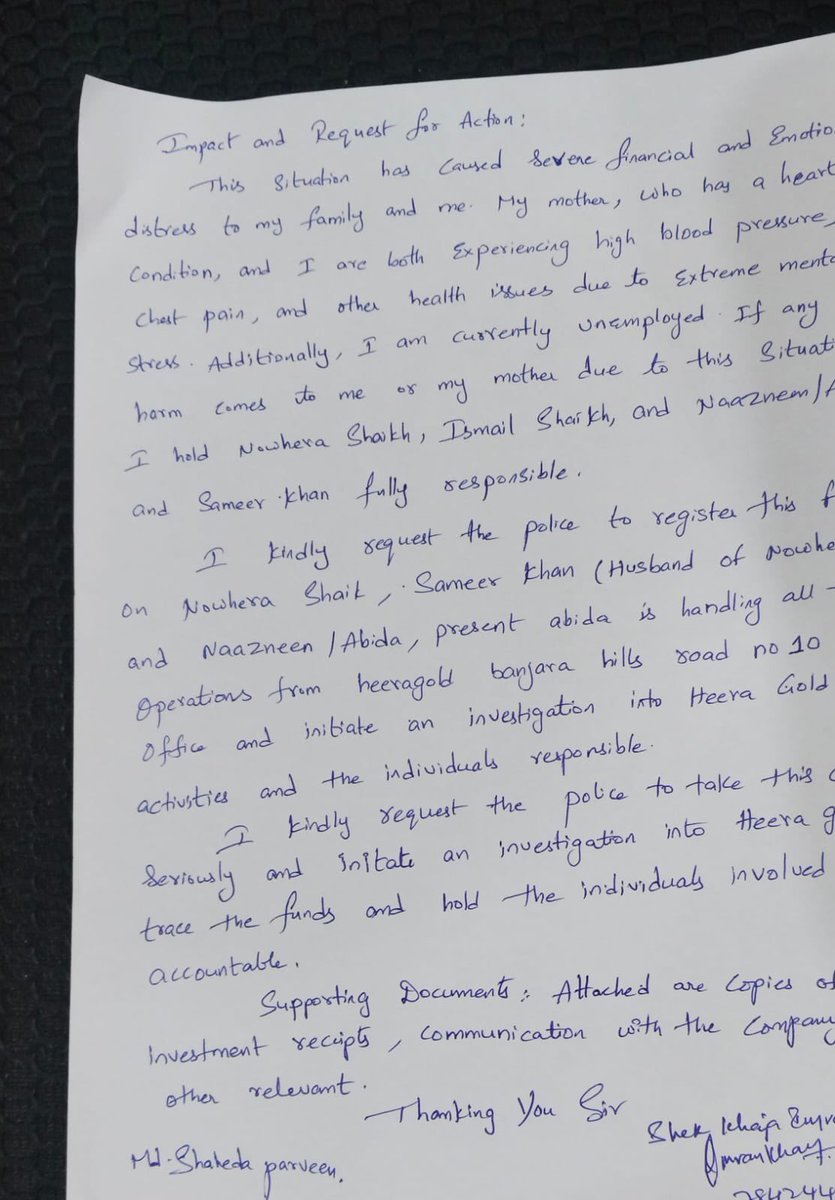 Impact and Request for Action:
This Situation has caused Severe financial and Emotio
distress to my family and me. My mother, who has a heart
condition, and I are both Experiencing high blood pressure,
chest pain, and other health issues due to Extreme menta
stress. Additionally, I am currently unemployed. If any
harm comes to me or my mother due to this Situati
I hold Nowhera Shaikh, Ismail Shaikh, and Naazneem/A
and Sameer khan fully responsible.
I kindly request the police to register this f
on Nowhera Shaik, Sameer khan (Husband of Nowhe
and Naazneen/Abida, present abida is handling all
operations from heeragold banjara hills road no 10
office and initiate an investigation into Heera Gold
activities and the individuals responsible.
I kindly request the police to take this c
Seriously and initate an investigation into Heera g
trace the funds and hold the individuals involved
accountable.
Supporting Documents: Attached are copies of
investment receipts, communication with the company
other relevant.
Thanking You Sir
Md. Shaheda parveen.
Imran khan